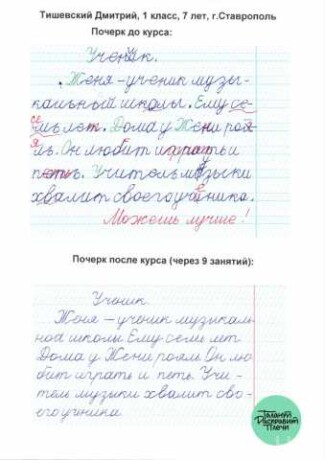 Тишевский Дмитрий, 1 класс, 7 лет, г.Ставрополь
Почерк до курса:
Ученик.
Женя – ученик музы-
кальный школы. Ему се-
мь лет. Дома у Жени роя-
ль. Он любит играть и
петь. Учитель музыки
хвалит своего ученика.
Можешь лучше!
Почерк после курса (через 9 занятий):
Ученик.
Женя – ученик музыкаль
ной школы Ему семь лет
Дома у Жени роял Он лю
бит играть и петь. Учи-
тель музыки хвалит сво-
его ученика
Расправит
Плечи